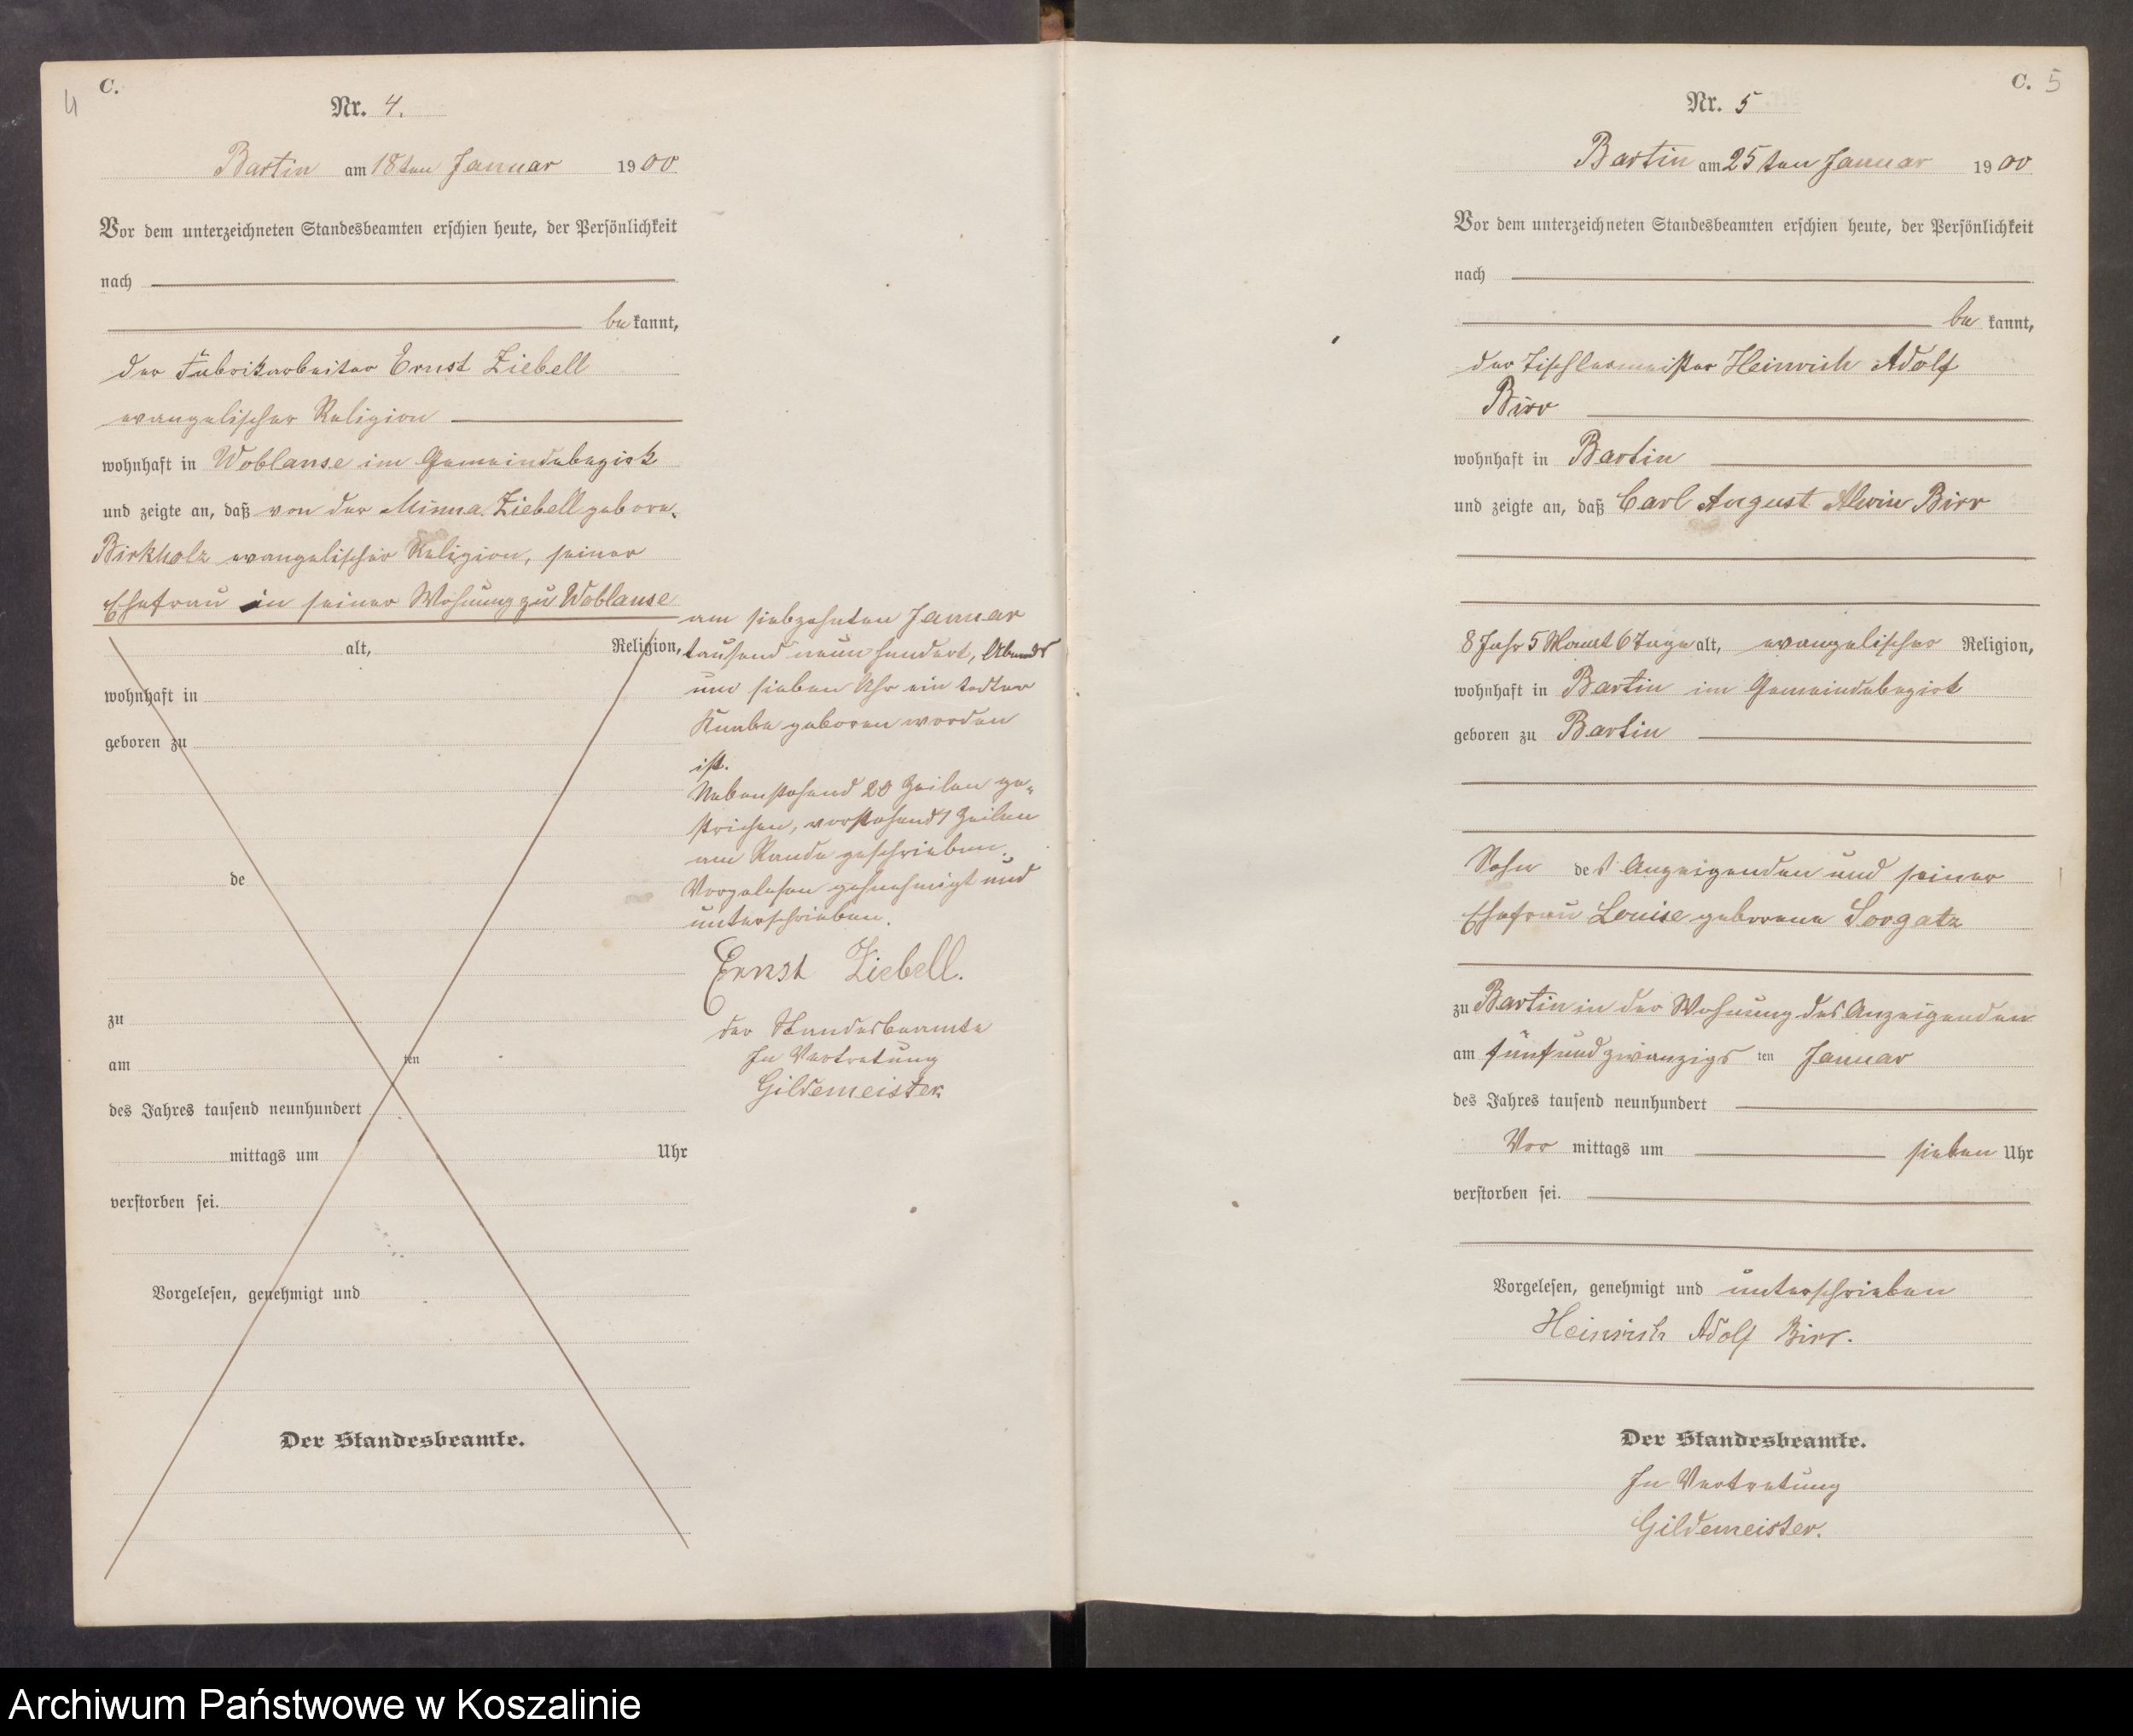 4
C.
Nr. 4.
Bartin am 18ten Januar 1900
Vor dem unterzeichneten Standesbeamten erschien heute, der Persönlichkeit
nach
be kannt,
der Fabrikarbeiter Ernst Ziebell
evangelischer Religion
wohnhaft in Woblanse im Gemeindebezirk
und zeigte an, daß von der Minna Ziebell gebore-
Birkholz evangelischer Religion, seiner
Ehefrau in seiner Wohnung zu Woblanse
alt, Religion,
wohnhaft in
geboren zu
de
zu
am ten
des Jahres tausend neunhundert
mittags um Uhr
verstorben sei.
Vorgelesen, genehmigt und
Der Standesbeamte.
am siebzehnten Januar
tausend neunhundert, Abends
um sieben Uhr ein todter
Knabe geboren worden
ist.
Nebenstehend 20 Zeilen ge-
strichen, vorstehend Zeilen
am Rande geschrieben.
Vorgelesen genehmigt und
unterschrieben.
Ernst Ziebell.
der Standesbeamte
In Vertretung
Gildemeister
C. 5
Nr. 5
Bartin am 25ten Januar 1900
Vor dem unterzeichneten Standesbeamten erschien heute, der Persönlichkeit
nach
be kannt,
der Tischlermeister Heinrich Adolf
Birr
wohnhaft in Bartin
und zeigte an, daß Carl August Alwin Birr
8 Jahr 5 Monat 6 Tage alt, evangelischer Religion,
wohnhaft in Bartin im Gemeindebezirk
geboren zu Bartin
Sohn des Anzeigenden und seiner
Ehefrau Louise geborene Sorgatz
zu Bartin in der Wohnung des Anzeigenden
am fünfundzwanzigs ten Januar
des Jahres tausend neunhundert
Vor mittags um sieben Uhr
verstorben sei.
Vorgelesen, genehmigt und unterschrieben
Heinrich Adolf Birr.
Der Standesbeamte.
In Vertretung
Gildemeister.
Archiwum Państwowe w Koszalinie